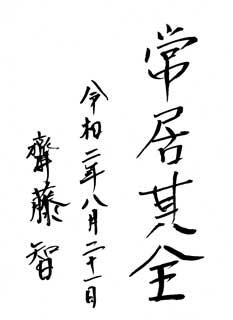 常居其全
令和二年八月二十一日
齋藤智